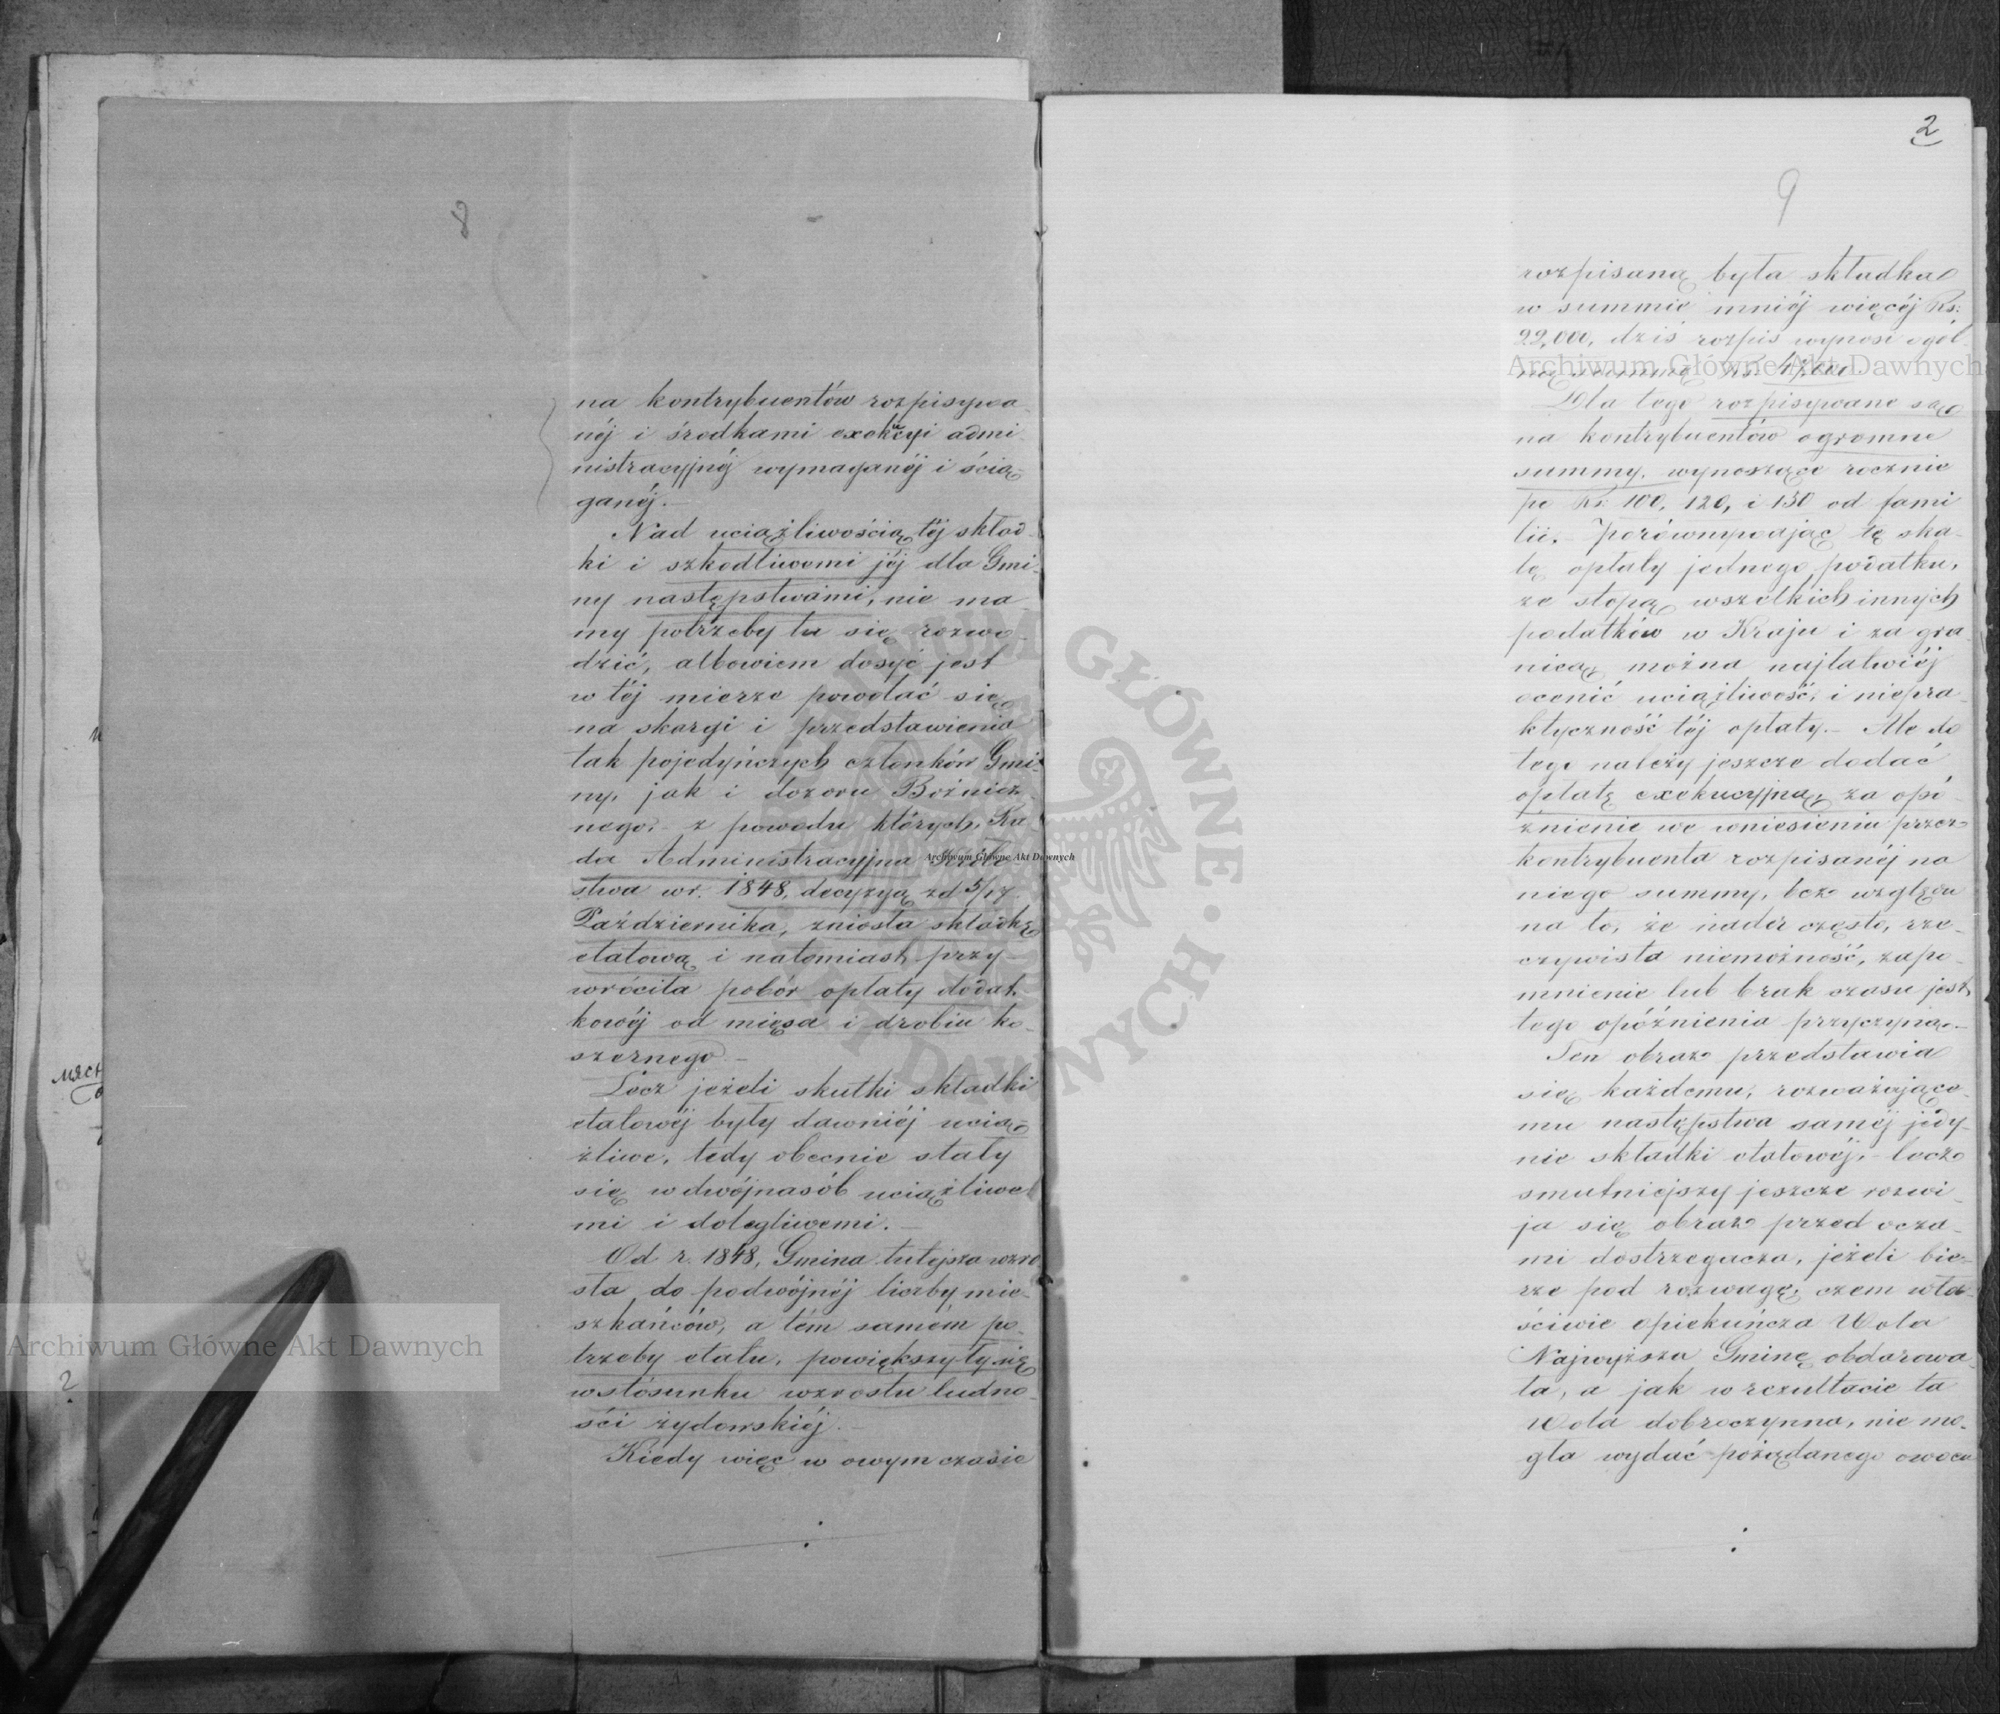 8
na kontrybuentów rozpisywa-
néj i środkami exekucyi admi-
nistracyjnéj wymaganéj i ścią-
ganéj.-
Nad uciążliwością téj skład-
ki i szkodliwemi jéj dla Gmi-
ny następstwami, nie ma-
my potrzeby tu się rozwo-
dzić, albowiem dosyć jest
w téj mierze powołać się
na skargi i przedstawienia
tak pojedyńczych członków Gmi-
ny, jak i dozoru Bóżnicz-
nego,- z powodu których, Ra-
da Administracyjna Króle-
stwa w r. 1848, decyzyą zd 5/17
Października, zniosła składkę
etatową i natomiast przy-
wróciła pobór opłaty dodat-
kowéj od mięsa i drobiu ko-
szernego.-
Lecz jeżeli skutki składki
etatowéj były dawniéj ucią-
żliwe, tedy obecnie stały
się w dwójnasób uciążliwe-
mi i dolegliwemi.-
Od r. 1848, Gmina tutejsza wzro-
sła do podwójnéj liczby mie-
szkańców, a tém samém po-
trzeby etatu, powiększyły się
w stosunku wzrostu ludno-
ści żydowskiéj.-
Kiedy więc w owym czasie
мяс
?
2
9
rozpisaną była składka
w summie mniéj więcéj Rs:
22,000, dziś rozpis wynosi ogól-
ną summę Rs.
Dla tego rozpisywane są
na kontrybuentów ogromne
summy, wynoszące rocznie
po Rs. 100, 120, i 150 od fami
lii.- Porównywając tę ska-
lę opłaty jednego podatku,
ze stopą wszelkich innych
podatków w Kraju i za gra-
nicą, można najłatwiéj
ocenić uciążliwość i niepra-
ktyczność téj opłaty.- Ale do
tego należy jeszcze dodać
opłatę exekucyjną, za opó-
źnienie we wniesieniu przez
kontrybuenta rozpisanéj na
niego summy, bez względu
na to, że nader często, rze-
czywista niemożność, zapo-
mnienie lub brak czasu jest
tego opóźnienia przyczyną.-
Ten obraz przedstawia
się każdemu, rozważające-
mu następstwa saméj jedy-
nie składki etatowéj,- lecz
smutniejszy jeszcze rozwi-
ja się obraz przed ocza-
mi dostrzegacza, jeżeli bie-
rze pod rozwagę, czem wła-
ściwie opiekuńcza Wola
Najwyższa Gminę obdarowa-
ła, a jak w rezultacie ta
Wola dobroczynna, nie mo-
gła wydać pożądanego owocu
Archiwum Główne Akt Dawnych
Archiwum Główne Akt Dawnych
Archiwum Główne Akt Dawnych